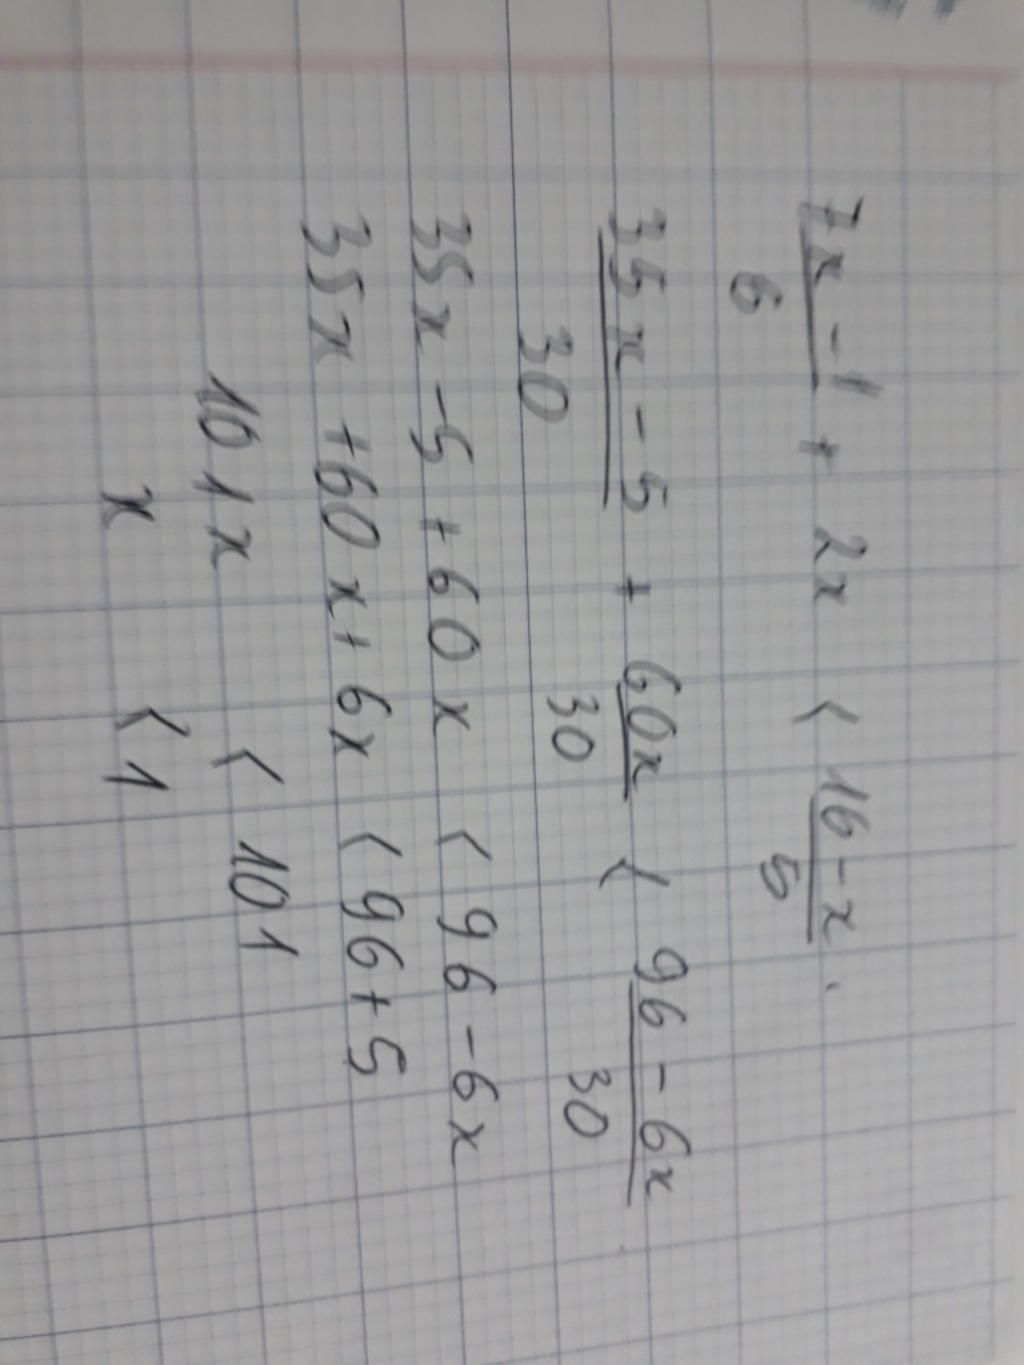 7x - 1 + 2x < 16 - x .
6 5
35x - 5 + 60x < 96 - 6x
30 30 30
35x - 5 + 60x < 96 - 6x
35x + 60x + 6x < 96 + 5
101x < 101
x < 1